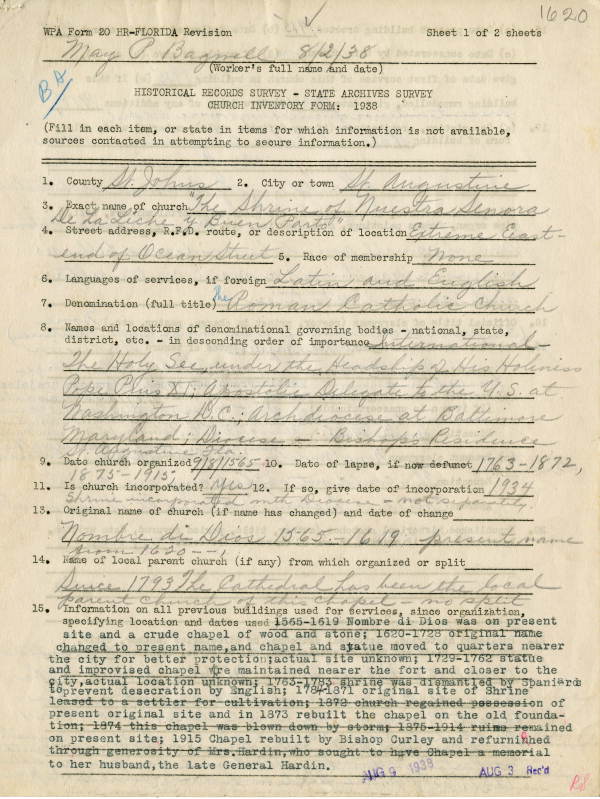 1620
WPA Form 20 HR-FLORIDA Revision Sheet 1 of 2 sheets
May P. Bagwell 8/2/38
(Worker's full name and date)
BA
HISTORICAL RECORDS SURVEY - STATE ARCHIVES SURVEY
CHURCH INVENTORY FORM: 1938
(Fill in each item, or state in items for which information is not available,
sources contacted in attempting to secure information.)
1. County St. Johns 2. City or town St. Augustine
3. Exact name of church "The Shrine of Nuestra Senora
De La Leche y Buen Parto"
4. Street address, R.F.D. route, or description of location Extreme East-
end of Ocean Street 5. Race of membership None
6. Languages of services, if foreign Latin and English
7. Denomination (full title) the Roman Catholic Church
8. Names and locations of denominational governing bodies - national, state,
district, etc. - in descending order of importance International-
The Holy See, under the Headship of His Holiness
Pope Pius XI; Apostolic Delegate to the U.S. at
Washington D.C.; Archdiocese at Baltimore
Maryland; Diocese - Bishop's Residence
St. Augustine Fla.
9. Date church organized 9/8/1565 10. Date of lapse, if now defunct 1763-1872,
1875-1915
11. Is church incorporated? Yes 12. If so, give date of incorporation 1934
Shrine incorporated with Diocese - not separately.
13. Original name of church (if name has changed) and date of change
Nombre di Dios 1565-1619 present name
from 1620--,
14. Name of local parent church (if any) from which organized or split
Since 1793 The Cathedral has been the local
parent church of this chapel - no split
15. Information on all previous buildings used for services, since organization,
specifying location and dates used 1565-1619 Nombre di Dios was on present
site and a crude chapel of wood and stone; 1620-1728 original name
changed to present name,and chapel and statue moved to quarters nearer
the city for better protection;actual site unknown; 1729-1762 statue
and improvised chapel were maintained near the fort and closer to the
city,actual location unknown; 1763-1783 shrine was dismantled by Spaniards
to prevent desecration by English; 1784-1871 original site of Shrine
leased to a settler for cultivation; 1872 church regained possession of
present original site and in 1873 rebuilt the chapel on the old founda-
tion; 1874 this chapel was blown down by storm; 1875-1914 ruins remained
on present site; 1915 Chapel rebuilt by Bishop Curley and refurnished
through generosity of Mrs.Hardin,who sought to have Chapel a memorial
to her husband,the late General Hardin.
AUG 9 1938 AUG 3 Rec'd